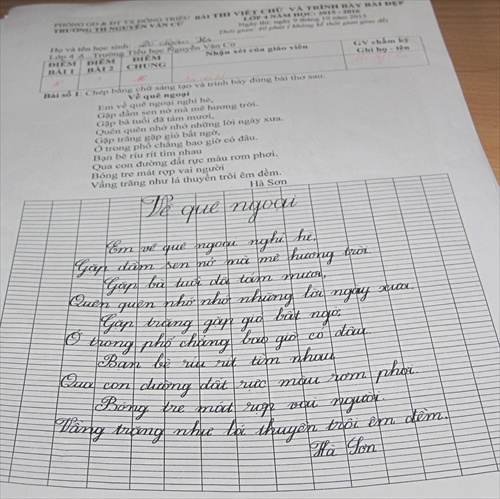 PHÒNG GD & ĐT TX ĐÔNG TRIỀU
TRƯỜNG TH NGUYỄN VĂN CỪ
BÀI THI VIẾT CHỮ VÀ TRÌNH BÀY BÀI ĐẸP
LỚP 4 NĂM HỌC: 2015 - 2016
Ngày thi: ngày 9 tháng 10 năm 2015
Thời gian: 40 phút ( không kể thời gian giao đề)
Họ và tên học sinh:
Lớp 4 A Trường Tiểu học Nguyễn Văn Cừ
ĐIỂM BÀI 1
ĐIỂM BÀI 2
ĐIỂM CHUNG
Nhận xét của giáo viên
GV chấm ký
Ghi họ - tên
Bài số 1: Chép bằng chữ sáng tạo và trình bày đúng bài thơ sau:
Về quê ngoại
Em về quê ngoại nghỉ hè,
Gặp đầm sen nở mà mê hương trời.
Gặp bà tuổi đã tám mươi,
Quên quên nhớ nhớ những lời ngày xưa.
Gặp trăng gặp gió bất ngờ,
Ở trong phố chẳng bao giờ có đâu.
Bạn bè ríu rít tìm nhau
Qua con đường đất rực màu rơm phơi,
Bóng tre mát rợp vai người
Vầng trăng như lá thuyền trôi êm đềm.
Hà Sơn
Về quê ngoại
Em về quê ngoại nghỉ hè,
Gặp đầm sen nở mà mê hương trời
Gặp bà tuổi đã tám mươi,
Quên quên nhớ nhớ những lời ngày xưa.
Gặp trăng gặp gió bất ngờ,
Ở trong phố chẳng bao giờ có đâu.
Bạn bè ríu rít tìm nhau
Qua con đường đất rực màu rơm phơi.
Bóng tre mát rợp vai người
Vầng trăng như lá thuyền trôi êm đềm.
Hà Sơn